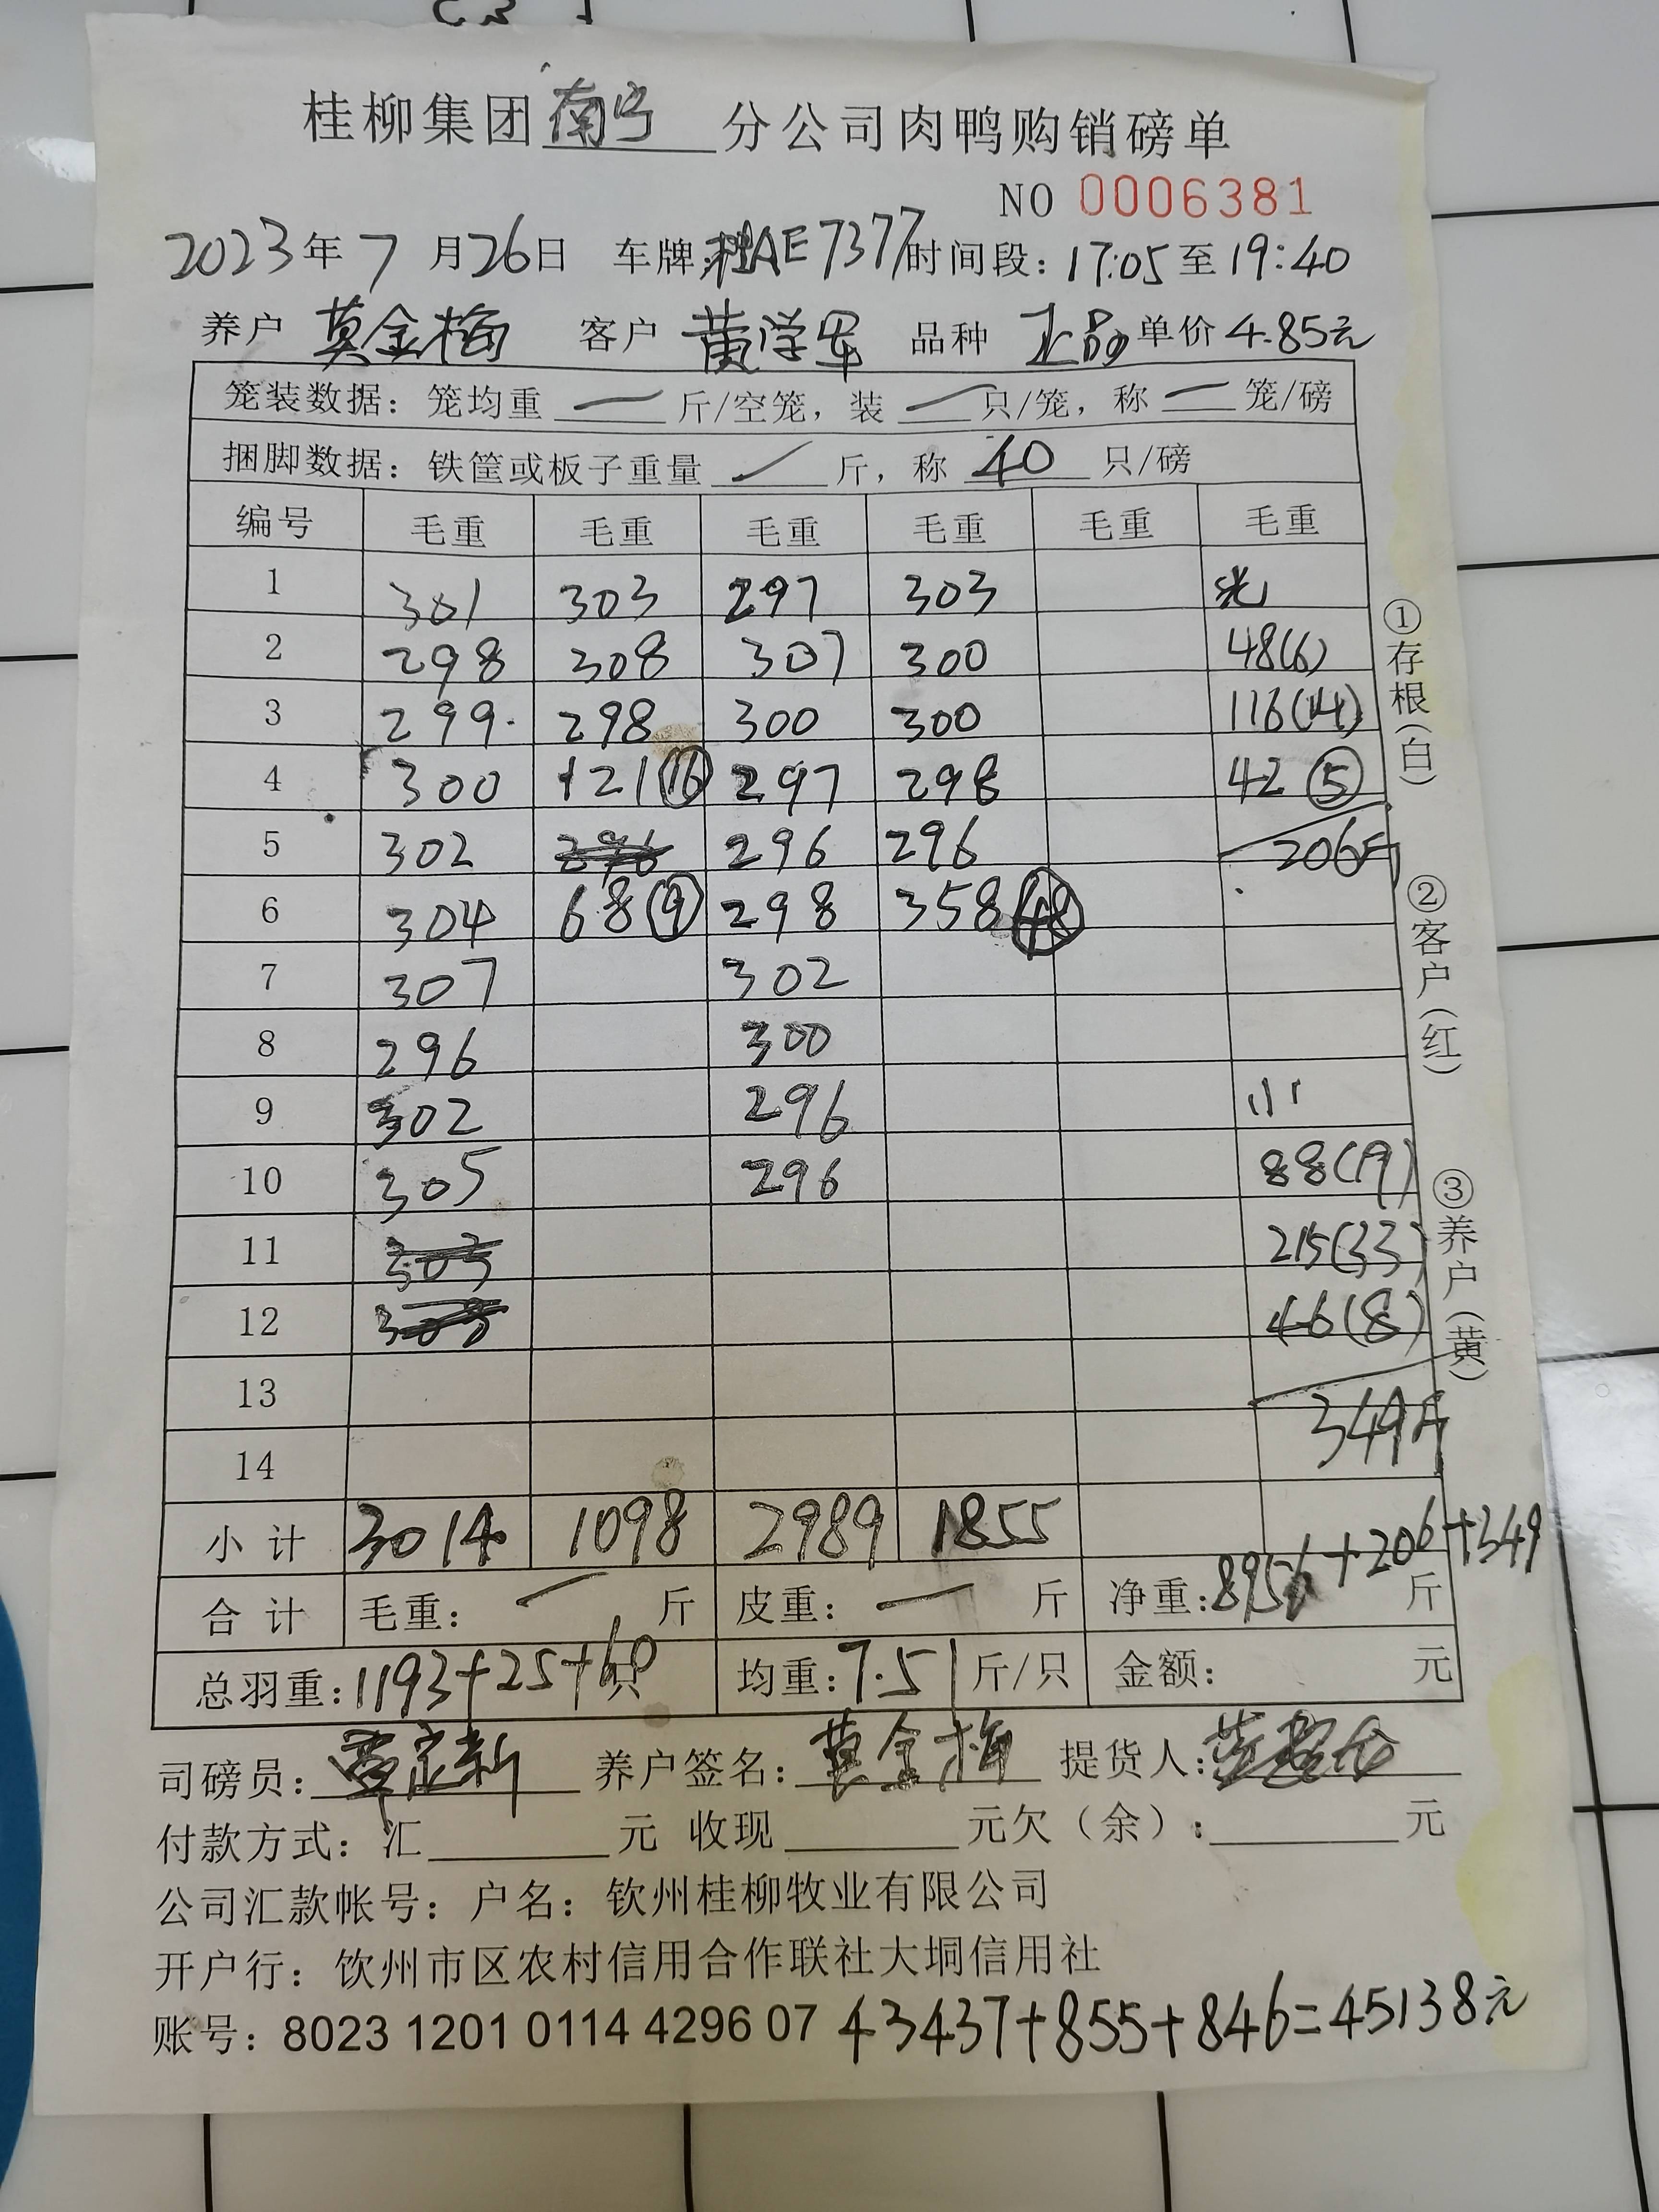 桂柳集团南宁分公司肉鸭购销磅单
NO 0006381
2023年7月26日 车牌:桂AE7377 时间段:17:05至19:40
养户 莫金梅 客户 黄学军 品种 正品 单价 4.85元
笼装数据:笼均重 一 斤/空笼,装 一 只/笼,称 一 笼/磅
捆脚数据:铁筐或板子重量 一 斤,称 40 只/磅
编号 毛重 毛重 毛重 毛重 毛重 毛重
1 301 303 297 303 光
2 298 308 307 300 48(6)
3 299 298 300 300 116(14)
4 300 121⑯ 297 298 42⑤
5 302 296 296 296 206斤
6 304 68⑨ 298 358㊽
7 307 302
8 296 300
9 302 296 小
10 305 296 88(19)
11 303 215(33)
12 46(8)
13 349斤
14
小计 3014 1098 2989 1855
合计 毛重: 一 斤 皮重: 一 斤 净重:8956+206+349斤
总羽重:1193+25+60只 均重:7.51斤/只 金额: 元
司磅员:覃定新 养户签名:莫金梅 提货人:
付款方式:汇 元 收现 元欠(余): 元
公司汇款帐号:户名:钦州桂柳牧业有限公司
开户行:钦州市区农村信用合作联社大垌信用社
账号:8023 1201 0114 4296 07 43437+855+846=45138元
①存根(白)
②客户(红)
③养户(黄)